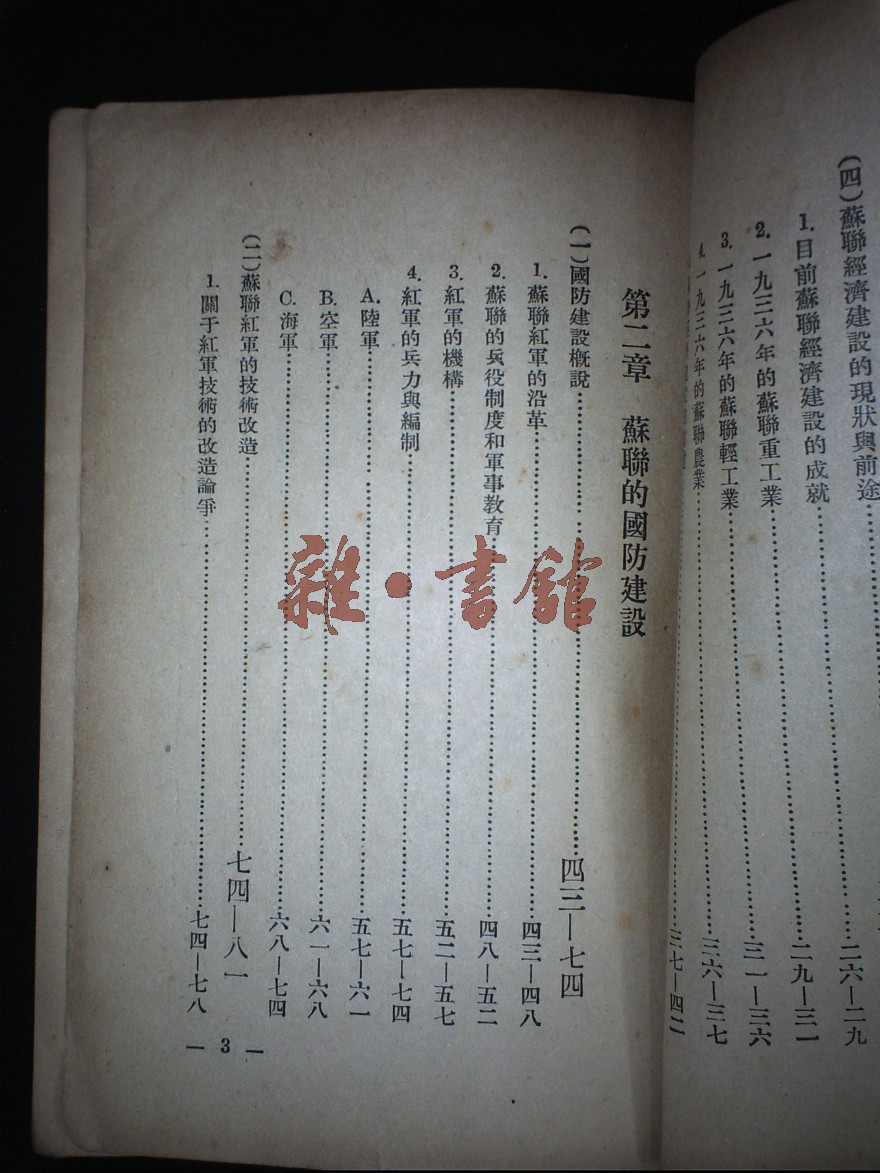 (四)蘇聯經濟建設的現狀與前途
二六—二九
1.目前蘇聯經濟建設的成就……二九—三一
2.一九三六年的蘇聯重工業……三一—三六
3.一九三六年的蘇聯輕工業……三六—三七
4.一九三六年的蘇聯農業……三七—四二
第二章 蘇聯的國防建設
(一)國防建設概說……四三—七四
1.蘇聯紅軍的沿革……四三—四八
2.蘇聯的兵役制度和軍事教育……四八—五二
3.紅軍的機構……五二—五七
4.紅軍的兵力與編制……五七—七四
A.陸軍……五七—六一
B.空軍……六一—六八
C.海軍……六八—七四
(二)蘇聯紅軍的技術改造……七四—八一
1.關于紅軍技術的改造論爭……七四—七八
— 3 —
雜·書舘